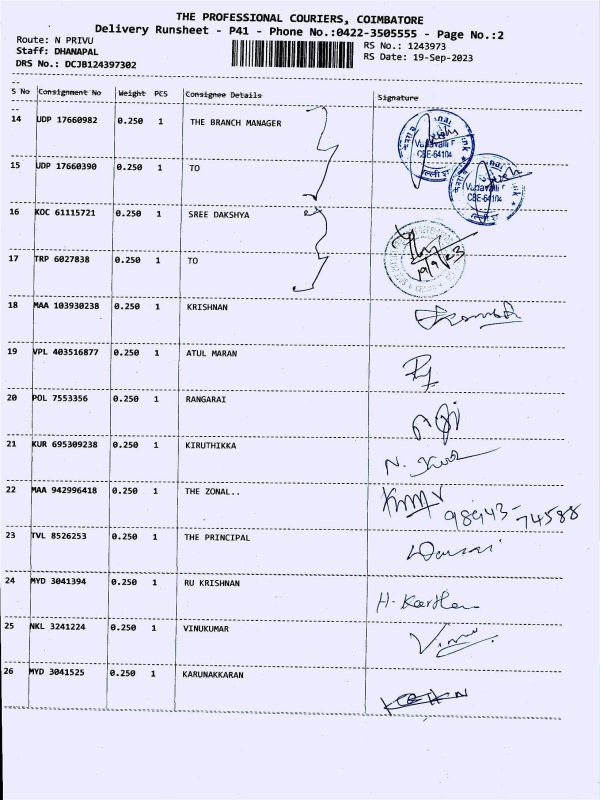 THE PROFESSIONAL COURIERS, COIMBATORE
Delivery Runsheet - P41 - Phone No.:0422-3505555 - Page No.:2
Route: N PRIVU
RS No.: 1243973
Staff: DHANAPAL
RS Date: 19-Sep-2023
DRS No.: DCJB124397302
S No Consignment No Weight PCS Consignee Details Signature
14 UDP 17660982 0.250 1 THE BRANCH MANAGER
15 UDP 17660390 0.250 1 TO
16 KOC 61115721 0.250 1 SREE DAKSHYA
17 TRP 6027838 0.250 1 TO
19/9/23
18 MAA 103930238 0.250 1 KRISHNAN
19 VPL 403516877 0.250 1 ATUL MARAN
20 POL 7553356 0.250 1 RANGARAI
21 KUR 695309238 0.250 1 KIRUTHIKKA
22 MAA 942996418 0.250 1 THE ZONAL..
98943-74588
23 TVL 8526253 0.250 1 THE PRINCIPAL
24 MYD 3041394 0.250 1 RU KRISHNAN
25 NKL 3241224 0.250 1 VINUKUMAR
26 MYD 3041525 0.250 1 KARUNAKKARAN